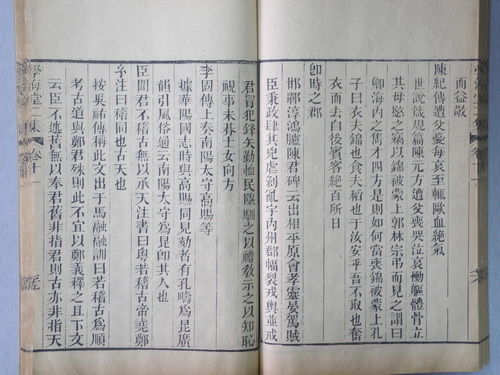 而益敬
陳紀傳遭父憂每哀至輒歐血絕氣
世說規箴篇陳元方遭父喪哭泣哀慟軀體骨立
其母愍之竊以錦被蒙上郭林宗弔而見之謂曰
卿海內之儁才四方是則如何當喪錦被蒙上孔
子曰衣夫錦也食夫稻也于汝安乎吾不取也奮
衣而去自後賓客絕百所日
卽時之郡
邯鄲淳鴻臚陳君碑云出相平原會孝靈晏駕賊
臣秉政肆其兇虐剝亂宇內州郡幅裂戎輿並戒
君冒犯鋒矢勤恤民隱馴之以禮敎示之以知恥
視事未朞士女向方
李固傳上奏南陽太守高賜等
據華陽國志時與高賜同見劾者有孔疇爲昆廣
韻引風俗通云南陽太守爲昆卽其人也
臣聞君不稽古無以承天注書曰粤若稽古帝堯鄭
玄注曰稽同也古天也
按吳祐傳稱此文出于馬融融訓曰若稽古爲順
考古道與鄭君殊則此不宜以鄭義釋之且下文
云臣不述舊無以奉君舊非指君則古亦非指天
學海堂二集 卷十一